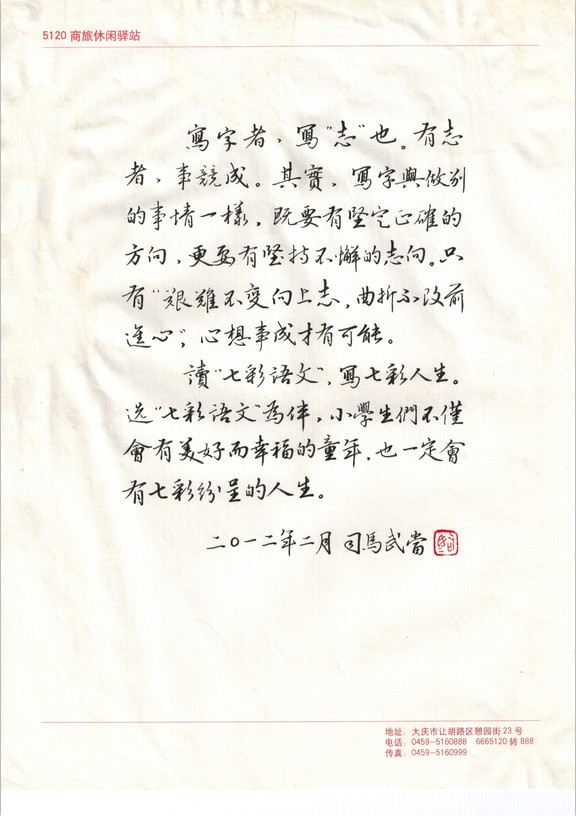 5120 商旅休闲驿站
寫字者，寫“志”也。有志
者，事競成。其實，寫字與做别
的事情一樣，既要有堅定正確的
方向，更要有堅持不懈的志向。只
有“艱難不變向上志，曲折不改前
進心”，心想事成才有可能。
讀“七彩语文”，寫七彩人生。
选“七彩语文”為伴，小學生們不僅
會有美好而幸福的童年，也一定會
有七彩纷呈的人生。
二〇一二年二月 司馬武當
地址：大庆市让胡路区憩园街 23 号
电话：0459-5160888 6665120 转 888
传真：0459-5160999